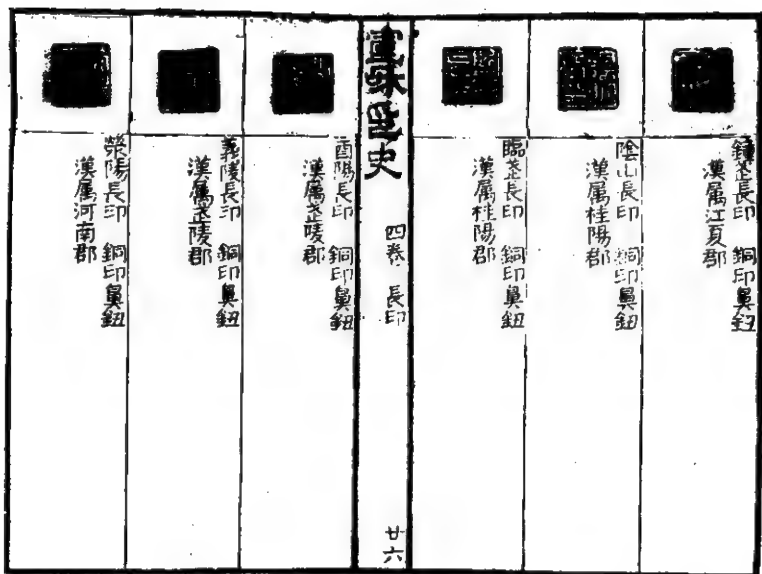 鍾武長印 銅印鼻鈕
漢属江夏郡
陰山長印 銅印鼻鈕
漢属桂陽郡
臨武長印 銅印鼻鈕
漢属桂陽郡
宣和印史 四卷 長印 廿六
酉陽長印 銅印鼻鈕
漢属武陵郡
義陵長印 銅印鼻鈕
漢属武陵郡
滎陽長印 銅印鼻鈕
漢属河南郡